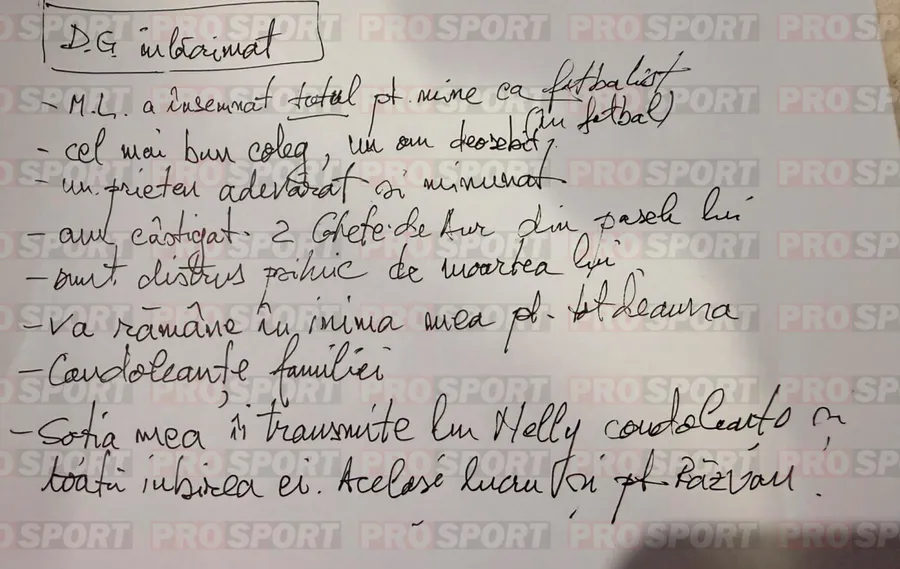 D.G înlăcrimat
- M.L. a însemnat totul pt. mine ca fotbalist
(în fotbal)
- cel mai bun coleg, un om deosebit,
- un prieten adevărat și minunat
- am câștigat 2 Ghete de Aur din pasele lui
- sunt distrus psihic de moartea lui
- Va rămâne în inima mea pt. totdeauna
- Condoleanțe familiei
- Soția mea îi transmite lui Nelly condoleanțe și
toată iubirea ei. Același lucru și pt. Răzvan.